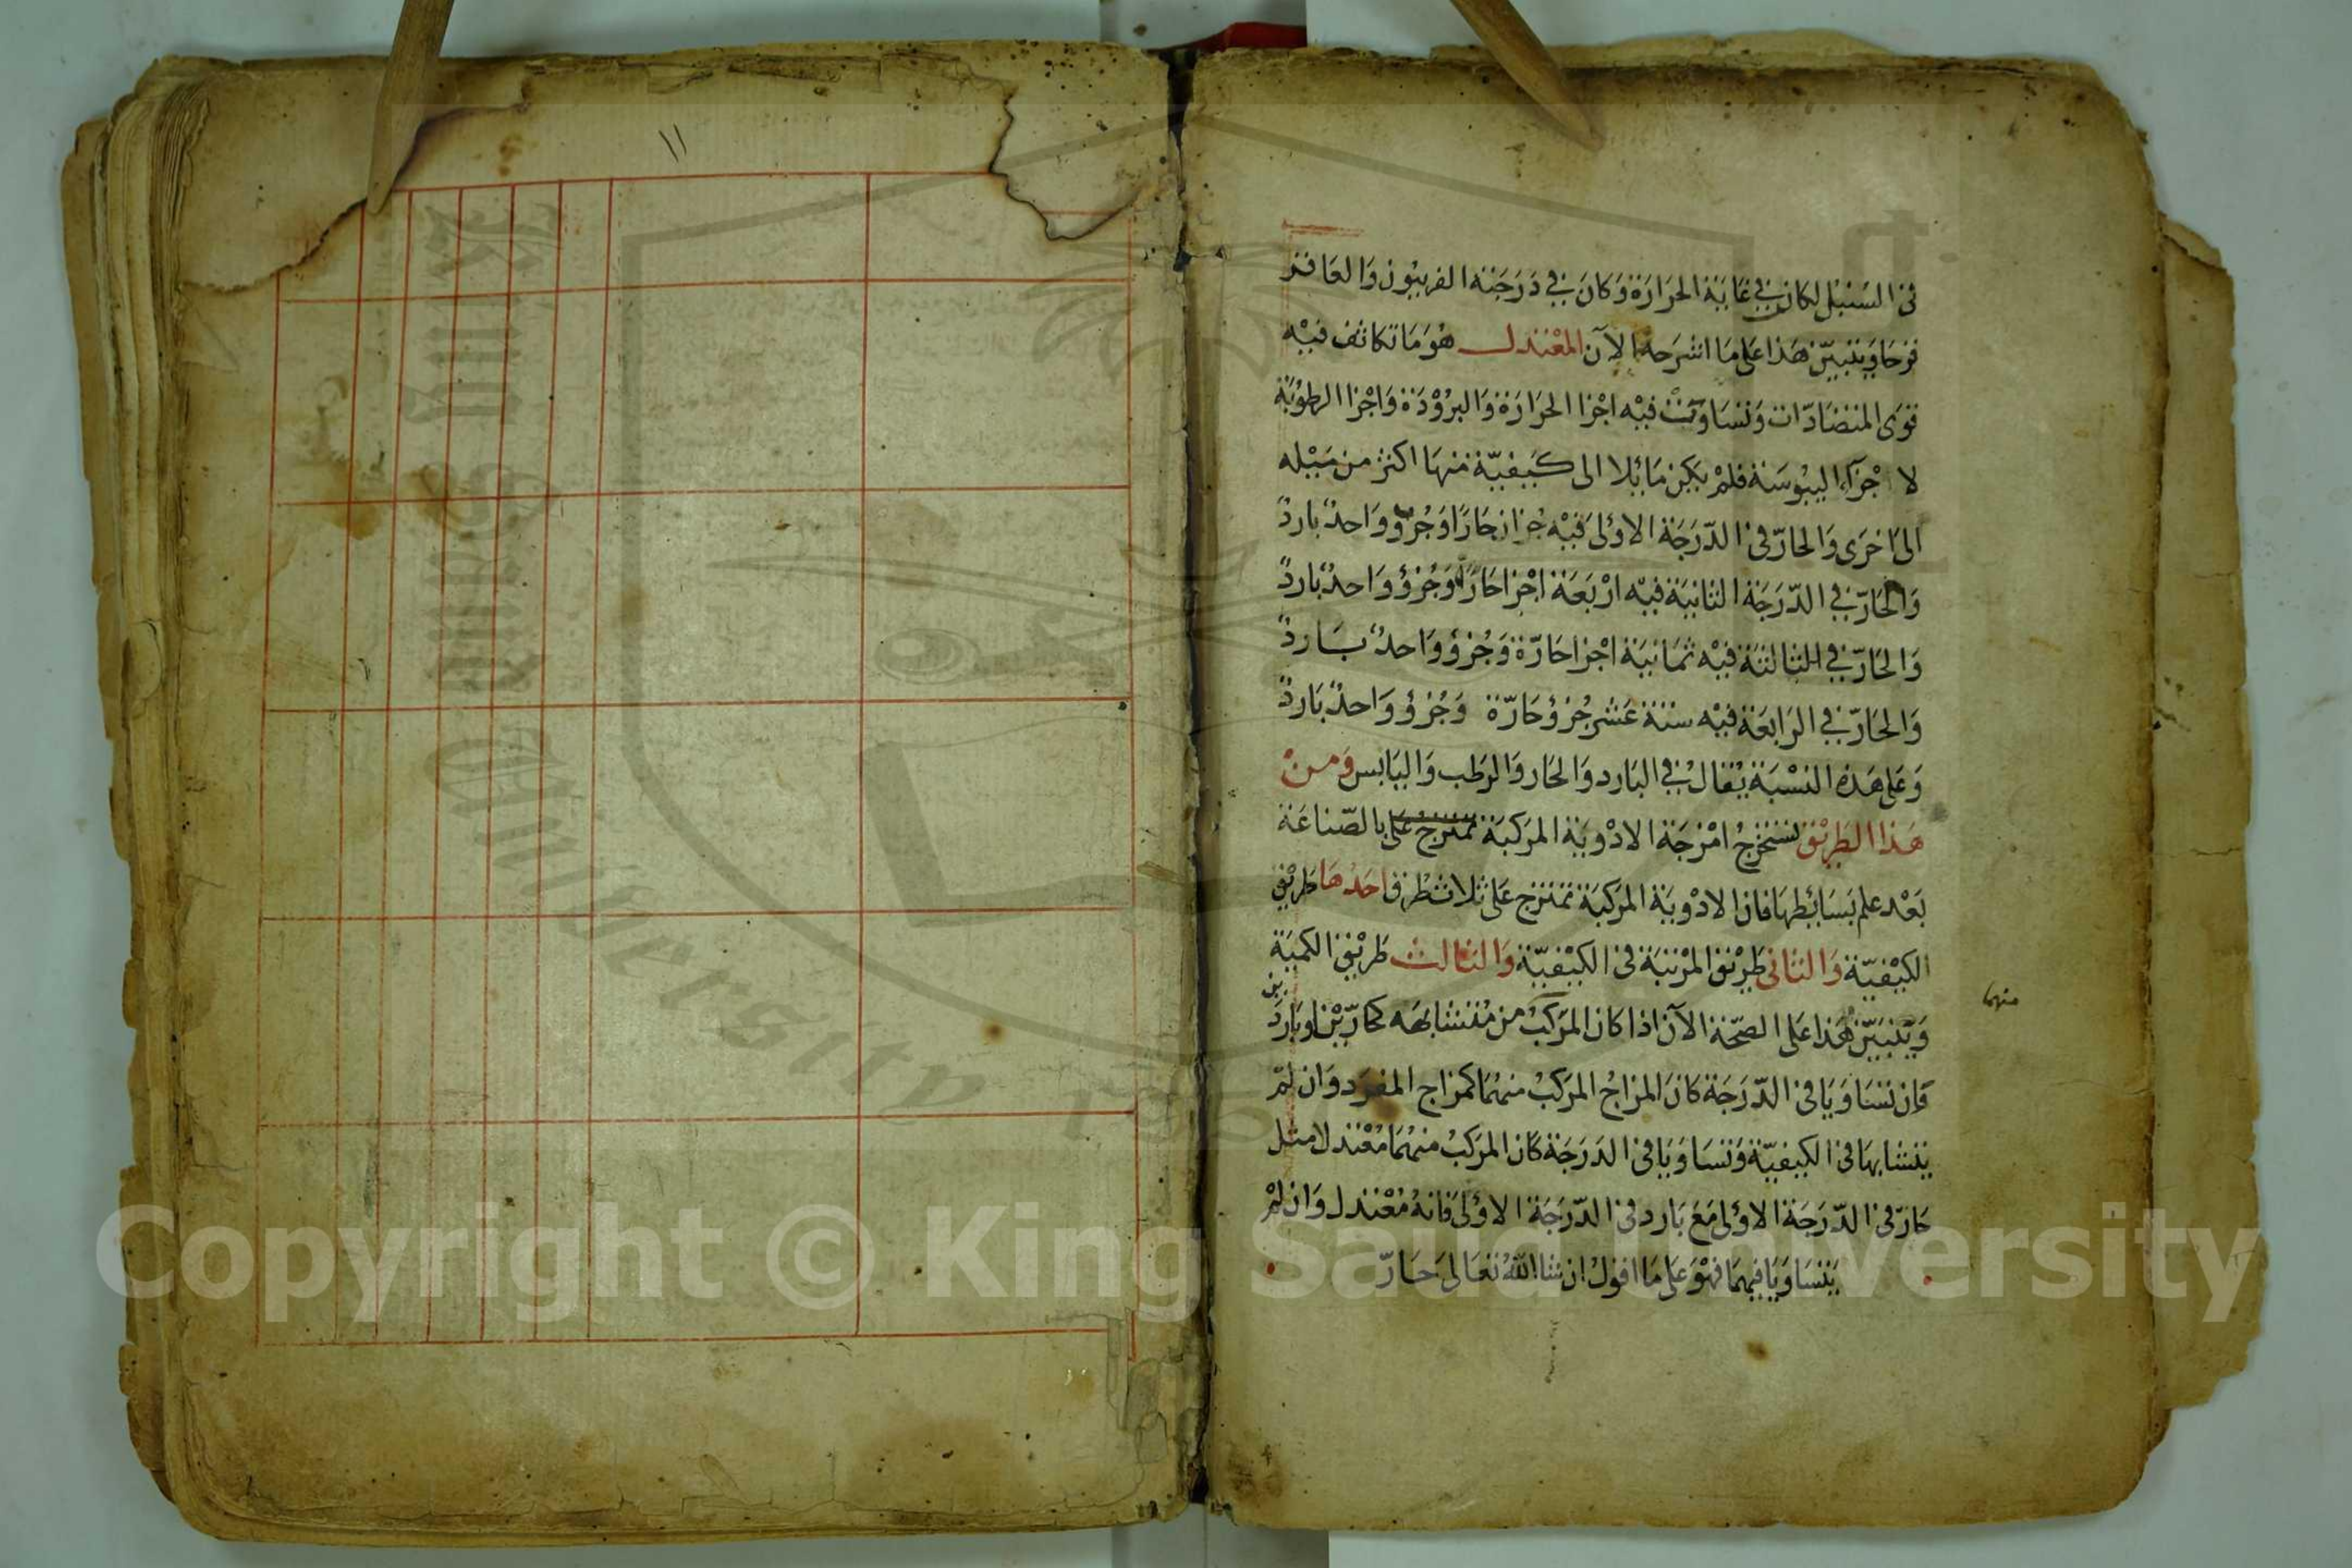 في السنبل لكان في غاية الحرارة وكان في درجته الفربيون والعاقر
قرحا ويتبيّن هذا على ما اشرحه الآن المعتدل هو ما تكاثف فيه
قوى المتضادّات وتساوت فيه اجزا الحرارة والبرُوْدة واجزا الرطوبة
لا جزآء اليبوسَة فلم يكن مائلا الى كيفيّة منها اكثر من ميْله
الى اخرى والحارّ في الدّرجَة الاولى فيْه جزان حارّا وجُزؤ وَاحدٌ باردٌ
وَالحَارّ في الدّرَجَة الثانيَة فيْه ارْبَعَة اجْزا حَارّة وَجُزؤ وَاحدٌ باردٌ
وَالحَارّ في الثالثَة فيْه ثمَانيَة اجْزا حَارّة وَجُزؤ وَاحدٌ بَاردٌ
وَالحَارّ في الرَابعَة فيْه ستة عَشر جُزؤ حَارّة وَجُزؤ وَاحدٌ بَاردٌ
وَعَلى هَذه النسْبَة يُقالُ في البَارد وَالحَار وَالرَطب وَاليَابس وَمنْ
هَذا الطَريْق نستخرجُ امْزجَة الادْويَة المركبَة تمتزجُ عَلى بالصّناعَة
بَعْد علم بَسَائطهَا فان الادْويَة المركبَة تمتزج عَلى ثلاث طرق احَدُهَا طريْق
الكيْفيّة وَالثانى طريْق المرْتبَة في الكيْفيّة وَالثالث طَريْق الكميَة
وَيَتبَيّن هَذا عَلى الصّحّة الآن اذا كان المركبُ من مُتشابهَه كحارّيْن او بَارد
ين
منهما
فان تسَاوَيَا في الدّرَجَة كانَ المزاجُ المركبُ منهُمَا كمزاج المفرَد وَان لمْ
يتشابهَا في الكيفيّة وَتسَاوَيَا في الدَرَجَة كان المركبُ منهُمَا مُعْتدلا مثل
حَارّ في الدّرَجَة الاولى مَعَ بَارد في الدّرَجَة الاولى فانهُ مُعْتدل وَان لمْ
يَتسَاوَيَا فيهمَا فهْوَ عَلى مَا اقولُ ان شا اللّهُ تعَالى حَارّ
١١
Copyright © King Saud University
King Saud University
1957